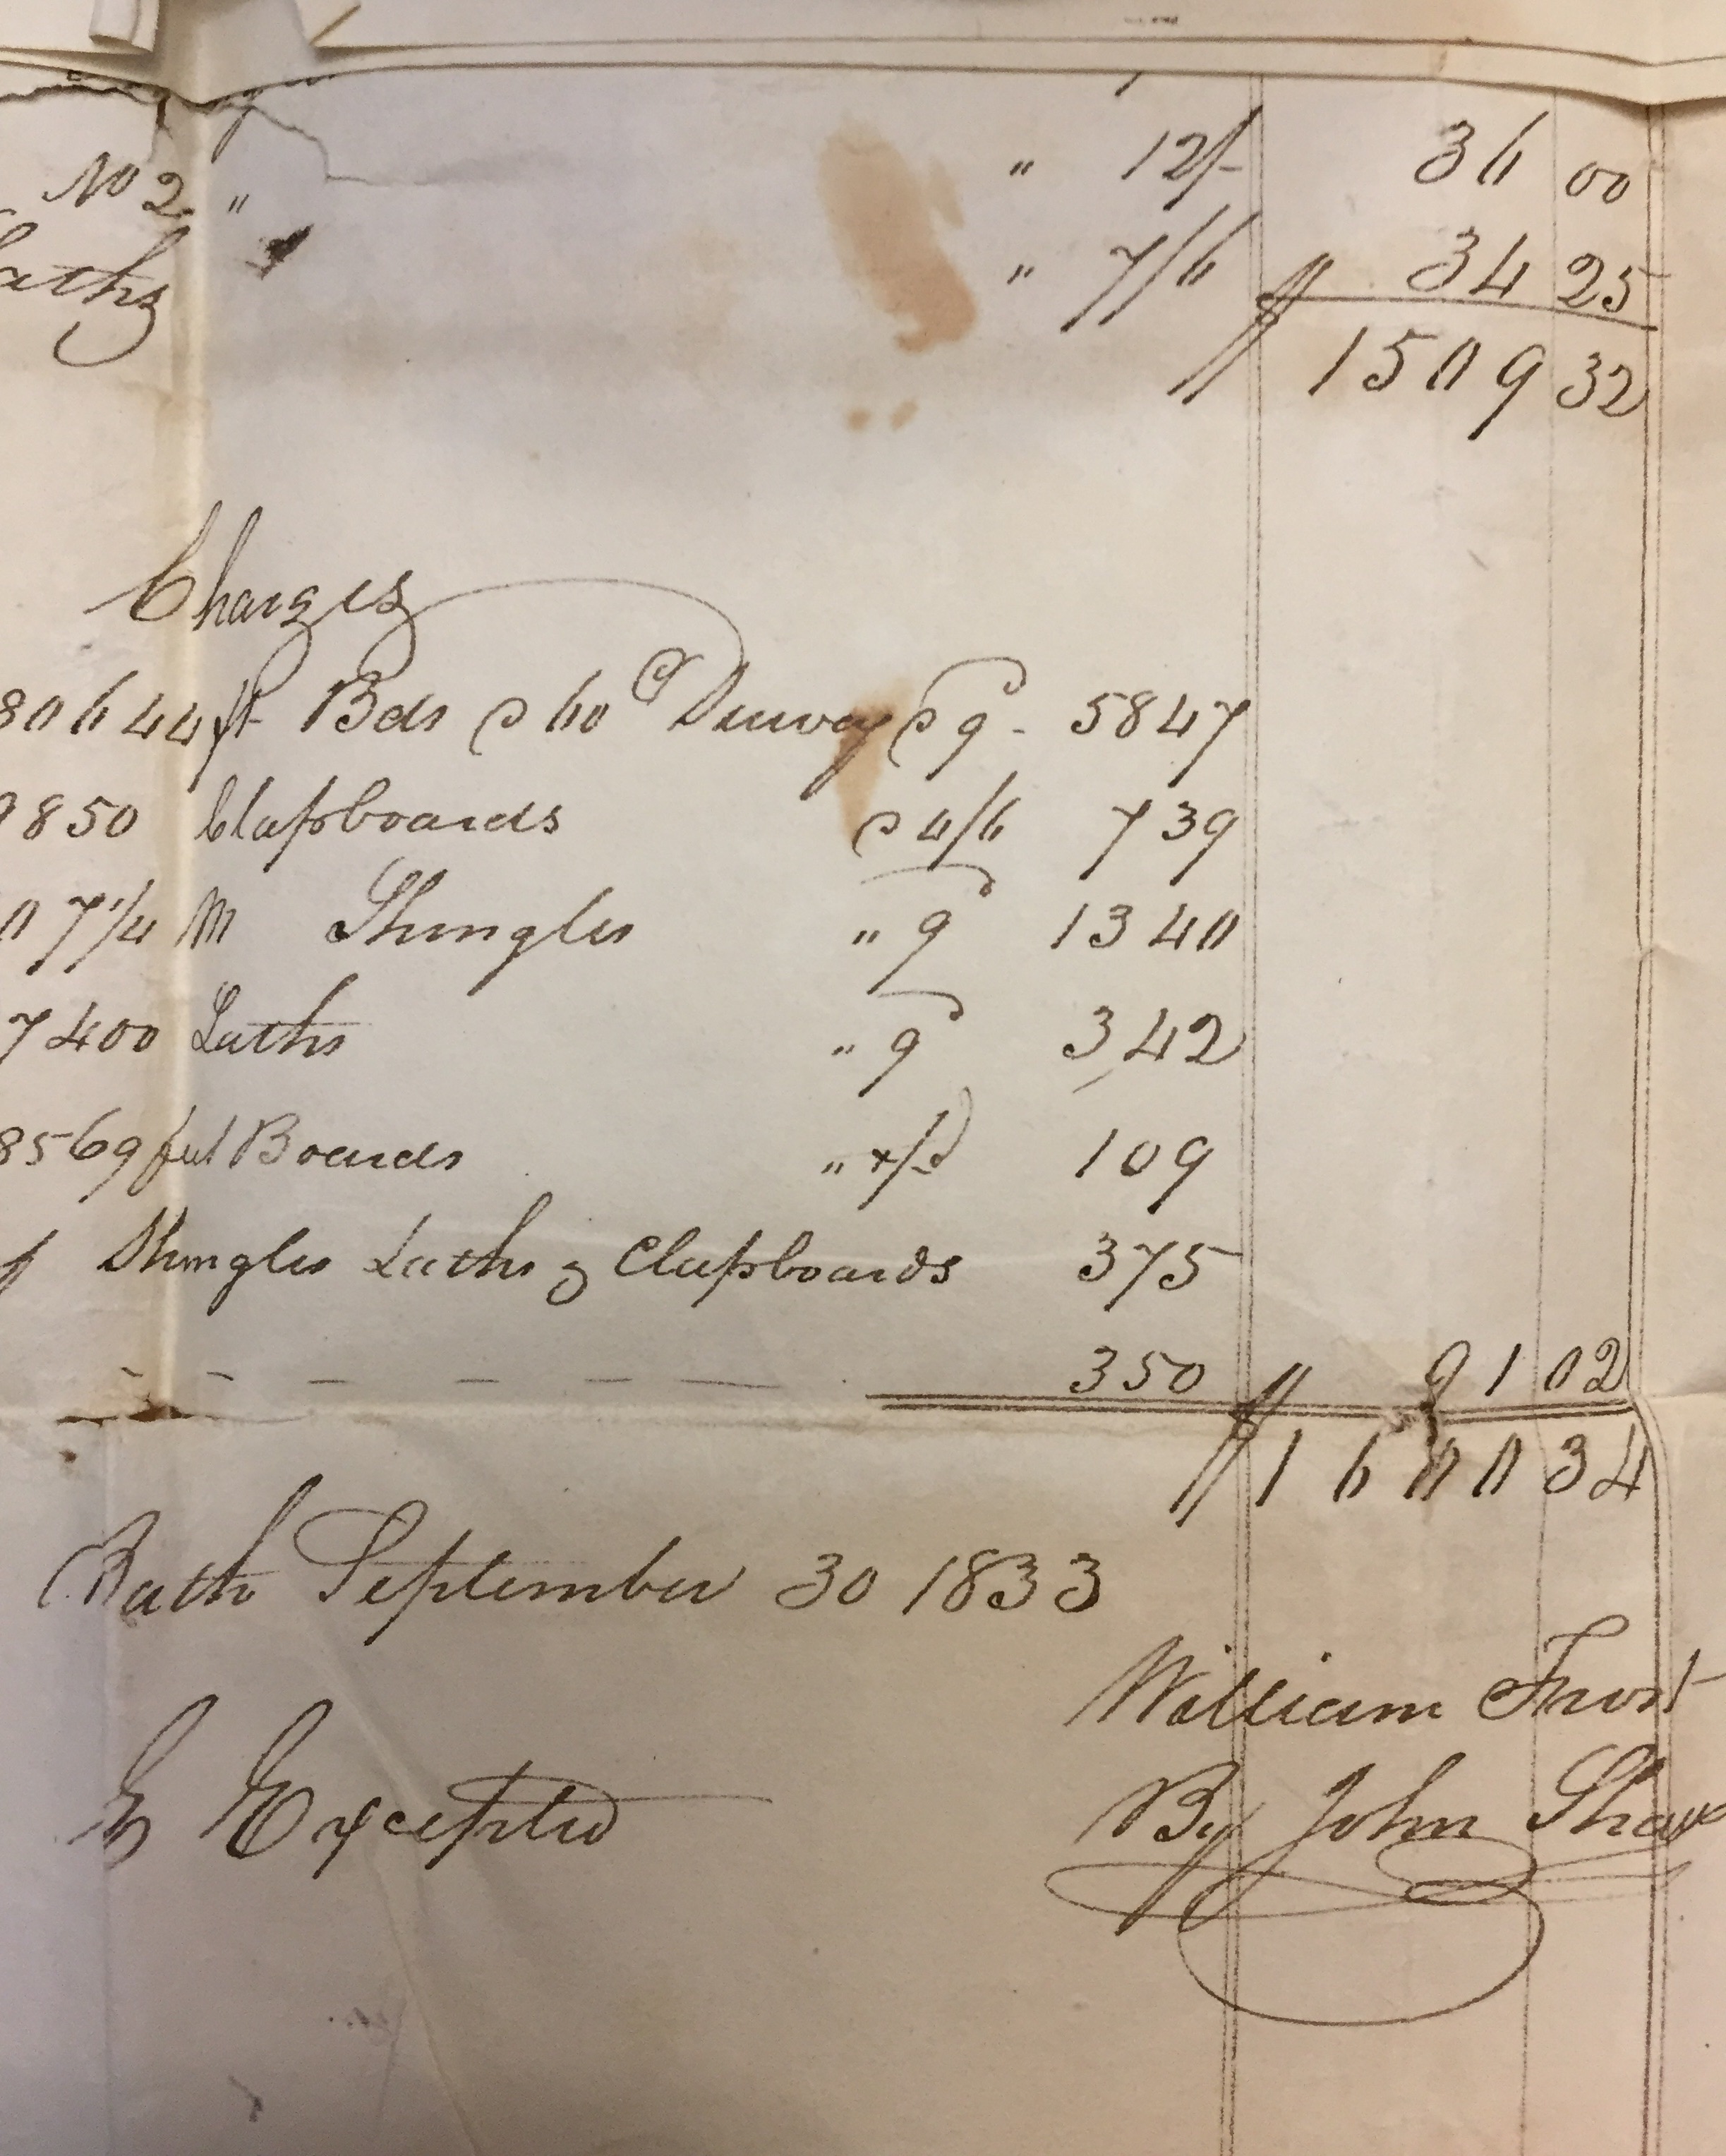 No 2 " " 12/- 36 00
Laths " 7/6 34 25
$ 1509 32
Charges
80644 ft Bds @ 60 Ct Survey @ 9d - 5847
9850 Clapboards @ 4/6 739
07 1/4 M Shingles " 9d 1340
7400 Laths " 9d 342
8569 feet Boards " 109
Shingles Laths & Clapboards 375
350 $ 91 02
$ 1600 34
Bath September 30 1833
William Frost
E Excepted By John Shaw